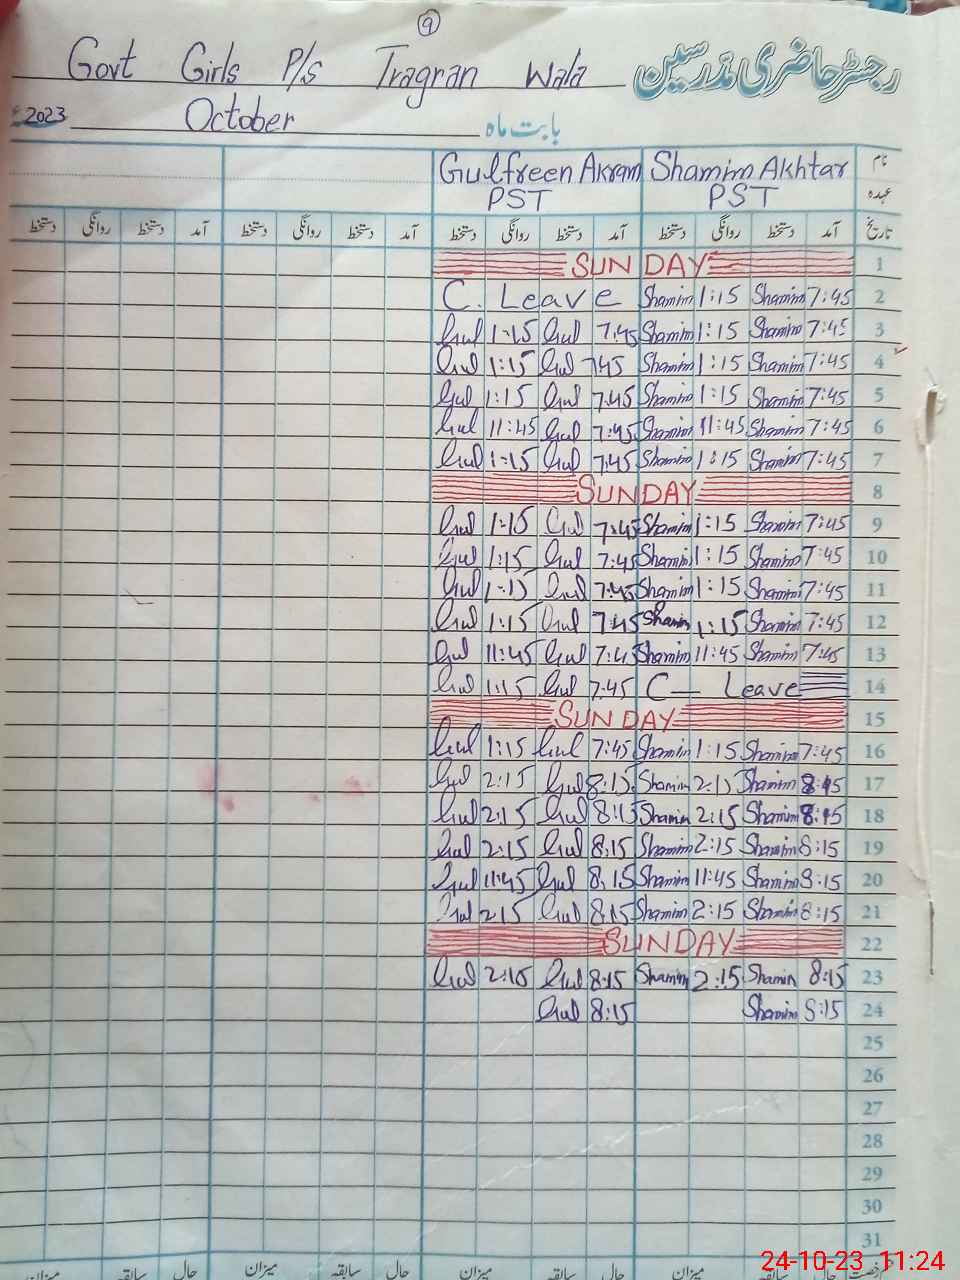 9
Govt Girls P/s Tragran Wala رجسٹر حاضری مدرسین
2023 October بابت ماہ
Gulfreen Akram Shamim Akhtar نام
PST PST عہدہ
دستخط روانگی دستخط آمد دستخط روانگی دستخط آمد دستخط روانگی دستخط آمد دستخط روانگی دستخط آمد تاریخ
SUNDAY 1
C. Leave Shamim 1:15 Shamim 7:45 2
Gul 1:15 Gul 7:45 Shamim 1:15 Shamim 7:45 3
Gul 1:15 Gul 745 Shamim 1:15 Shamim 7:45 4
Gul 1:15 Gul 7:45 Shamim 1:15 Shamim 7:45 5
Gul 11:45 Gul 7:45 Shamim 11:45 Shamim 7:45 6
Gul 1:15 Gul 7:45 Shamim 1:15 Shamim 7:45 7
SUNDAY 8
Gul 1:15 Gul 7:45 Shamim 1:15 Shamim 7:45 9
Gul 1:15 Gul 7:45 Shamim 1:15 Shamim 7:45 10
Gul 1:15 Gul 7:45 Shamim 1:15 Shamim 7:45 11
Gul 1:15 Gul 7:45 Shamim 1:15 Shamim 7:45 12
Gul 11:45 Gul 7:45 Shamim 11:45 Shamim 7:45 13
Gul 1:15 Gul 7:45 C — Leave 14
SUNDAY 15
Gul 1:15 Gul 7:45 Shamim 1:15 Shamim 7:45 16
Gul 2:15 Gul 8:15 Shamim 2:15 Shamim 17
Gul 2:15 Gul 8:15 Shamim 2:15 Shamim 18
Gul 2:15 Gul 8:15 Shamim 2:15 Shamim 8:15 19
Gul 11:45 Gul 8:15 Shamim 11:45 Shamim 8:15 20
Gul 215 Gul 8:15 Shamim 2:15 Shamim 8:15 21
SUNDAY 22
Gul 2:15 Gul 8:15 Shamim 2:15 Shamim 8:15 23
Gul 8:15 Shamim 8:15 24
25
26
27
28
29
30
31
میزان سابقہ حال میزان سابقہ حال میزان سابقہ حال رخصت
24-10-23 11:24